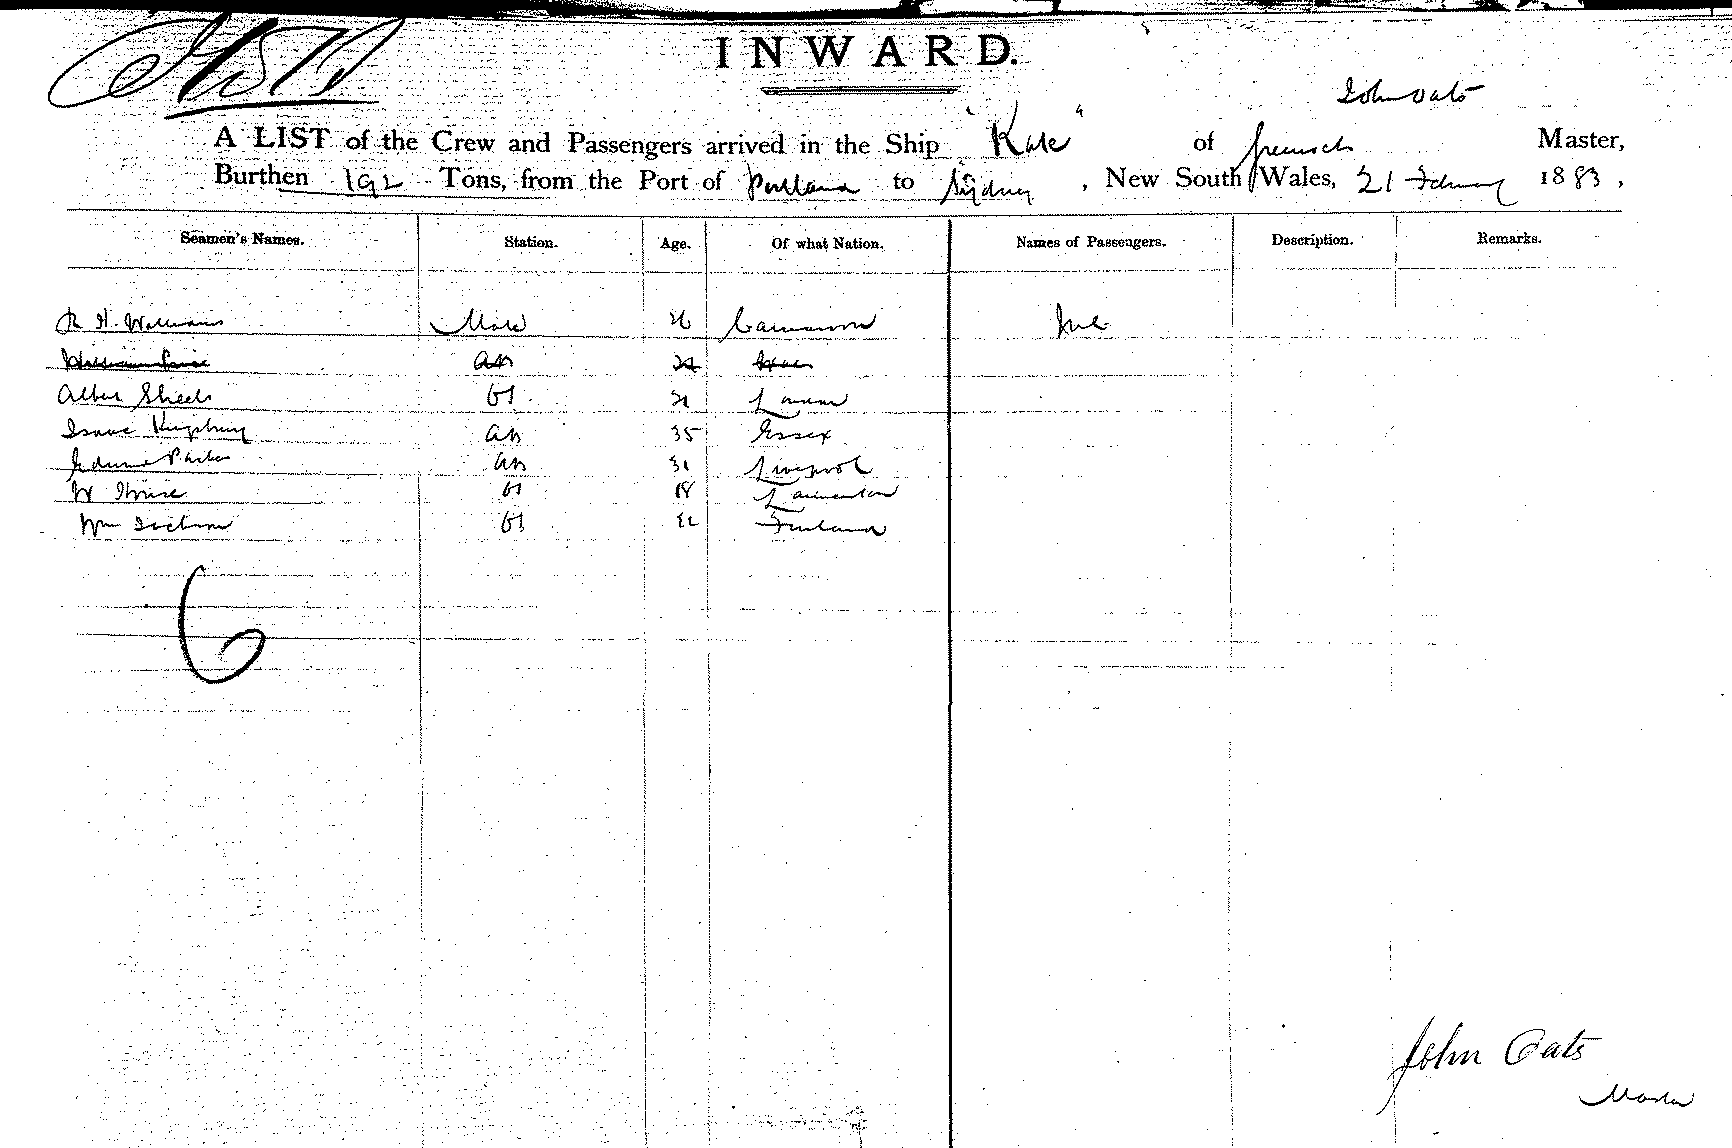 INWARD.
John Oats
A LIST of the Crew and Passengers arrived in the Ship "Kate" of Greenock Master,
Burthen 192 Tons, from the Port of Portland to Sydney, New South Wales, 21 February 1883,
Seamen's Names. Station. Age. Of what Nation. Names of Passengers. Description. Remarks.
R H. Williams Mate 26 Carnarvon
AB
Albert Sheels OS 21
Isaac Kingsbury AB 35 Essex
Parker AB 31 Liverpool
W OS 18
Wm OS 22 Finland
6
John Oats
Master